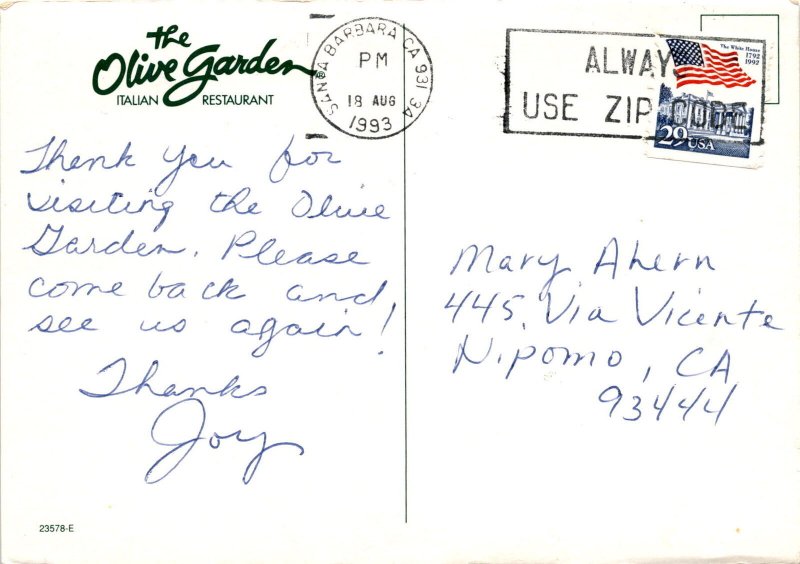 the
Olive Garden
ITALIAN RESTAURANT
SANTA BARBARA CA 931 3A
PM
18 AUG
1993
ALWAYS
USE ZIP CODE
The White House
1792
1992
29 USA
Thank you for
visiting the Olive
Garden. Please
come back and
see us again!
Thanks
Joy
Mary Ahern
445 Via Vicente
Nipomo, CA
93444
23578-E